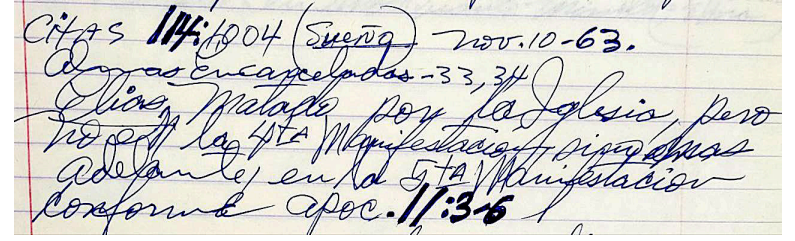 CitAS 114:1004 (Sueño) Nov. 10-63.
Almas Encarceladas-33,34
Elias, Matado por la Iglesia, pero
no en la 4TA Manifestación, sino mas
adelante, en la 5TA Manifestación
conforme apoc. 11:3-6